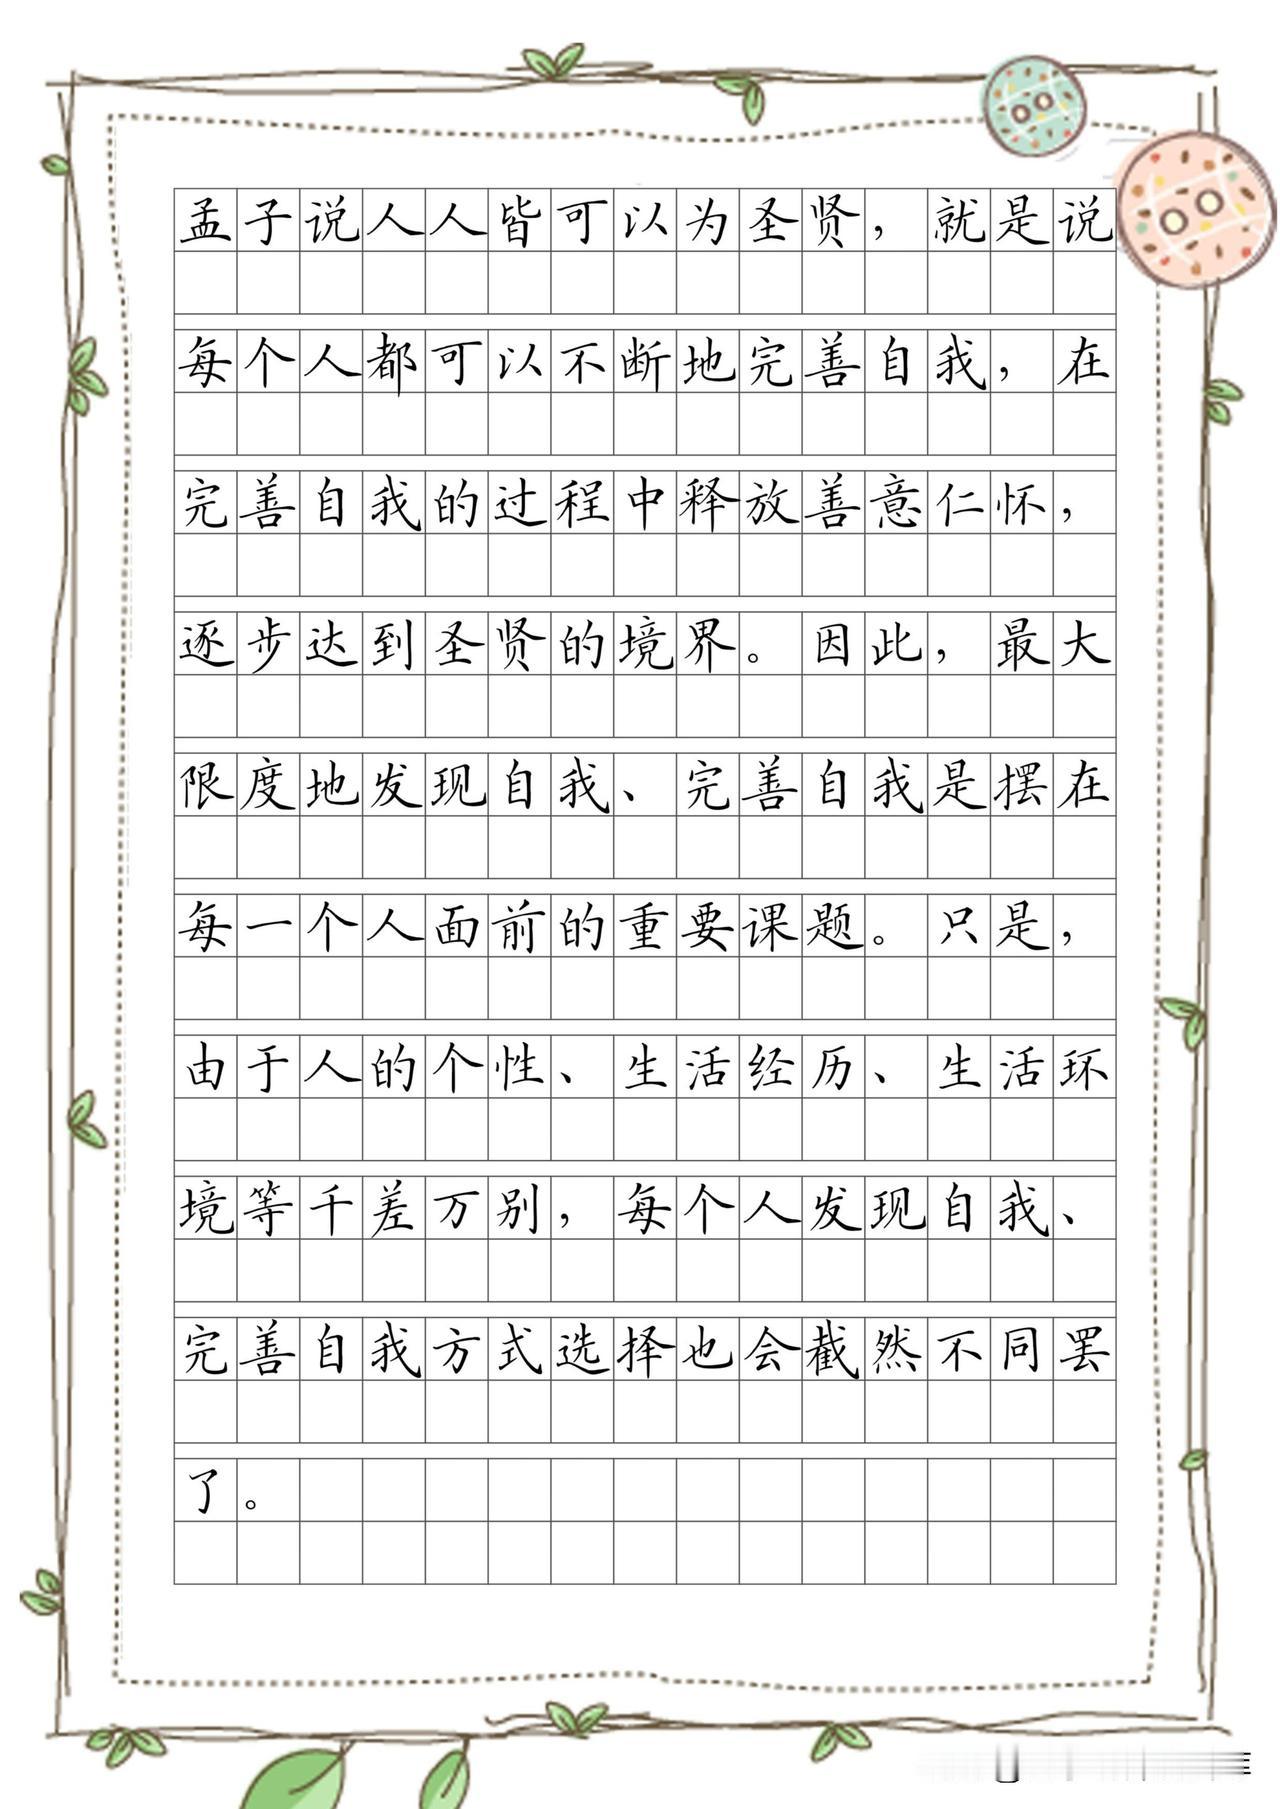 孟子说人人皆可以为圣贤，就是说
每个人都可以不断地完善自我，在
完善自我的过程中释放善意仁怀，
逐步达到圣贤的境界。因此，最大
限度地发现自我、完善自我是摆在
每一个人面前的重要课题。只是，
由于人的个性、生活经历、生活环
境等千差万别，每个人发现自我、
完善自我方式选择也会截然不同罢
了。